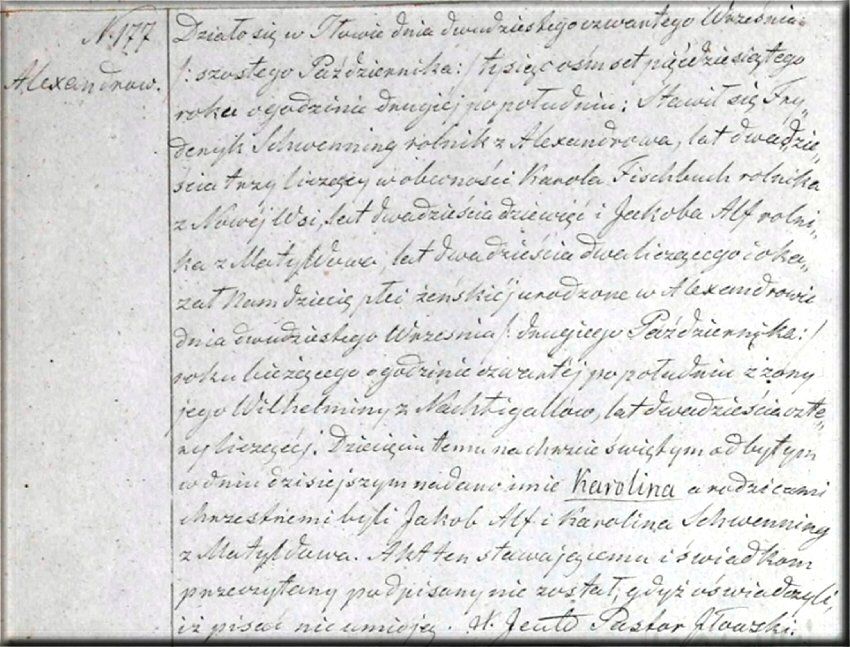 N. 177
Alexandrow.
Działo się w Iłowie dnia dwudziestego czwartego Września
/: szostego Października:/ tysięc ośmset pięćdziesiątego
roku o godzinie drugiej po południu: Stawił się Fry„
deryk Schwenning rolnik z Alexandrowa, lat dwadzie„
ścia trzy liczący w obecności Karola Fischbuch rolnika
z Nowéj Wsi, lat dwadzieścia dziewięć i Jakoba Alf rolni„
ka z Matyldowa, lat dwadzieścia dwa liczącego i oka„
zał Nam dziecię płci żeńskiéj urodzone w Alexandrowie
dnia dwudziestego Września /: drugiego Października:/
roku bieżącego o godzinie czwartéj po południu z żony
jego Wilhelminy z Nachtigallow, lat dwadzieścia czte„
ry liczącéj. Dziecięciu temu na chrzcie świętym odbytym
w dniu dzisiejszym nadano imie Karolina a rodzicami
chrzestnemi byli Jakob Alf i Karolina Schwenning
z Matyldowa. Akt ten stawającemu i świadkom
przeczytany podpisany nie został, gdyż oświadczyli,
iż pisać nie umieją. Pastor Iłowski.